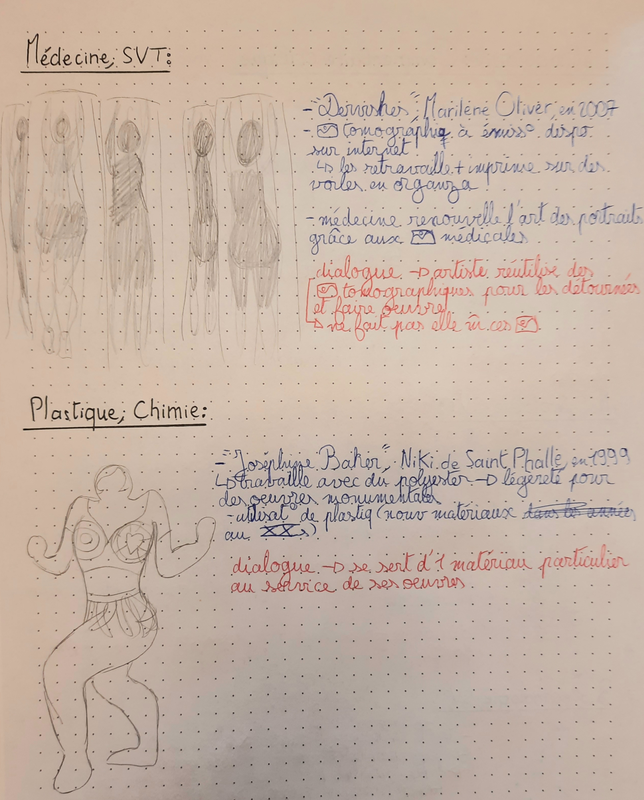 Médecine, SVT:
- "Dervishes", Marilène Oliver, en 2007
- tomographiq à émiss° dispo
sur internet
↳ les retravaille + imprime sur des
voiles en organza
- médecine renouvelle l'art des portraits
grâce aux médicales
dialogue → artiste réutilise des
tomographiques pour les détournées
et faire oeuvre
→ ne fait pas elle m̂ ces
Plastique, Chimie:
- "Joséphine Baker", Niki de Saint Phalle, en 1999
↳ travaille avec du polyester → légèreté pour
des oeuvres monumentales
- utilisat° de plastiq (nouv matériaux dans les années
au XXs)
dialogue → se sert d'1 matériau particulier
au service de ses oeuvres